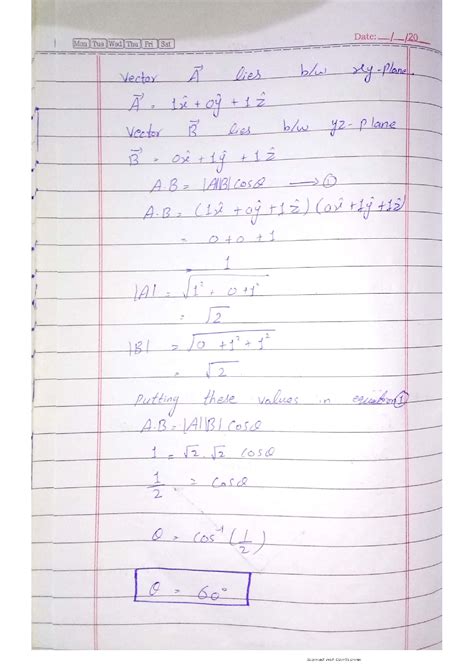 Mon Tue Wed Thu Fri Sat
Date: __/__/20__
Vector A⃗ lies b/w xy-plane.
A⃗ = 1x̂ + 0ŷ + 1ẑ
Vector B⃗ lies b/w yz-plane
B⃗ = 0x̂ + 1ŷ + 1ẑ
A.B = |A||B|cosθ → ①
A.B = (1x̂ + 0ŷ + 1ẑ)(0x̂ + 1ŷ + 1ẑ)
= 0 + 0 + 1
1
|A| = √1² + 0 + 1²
= √2
|B| = √0 + 1² + 1²
= √2
Putting these values in equation ①
A.B = |A||B| cosθ
1 = √2 . √2 cosθ
1/2 = cosθ
θ = cos⁻¹(1/2)
θ = 60°
Scanned with CamScanner